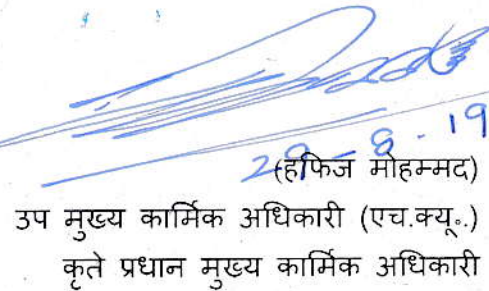 29-8-19
(हफिज मोहम्मद)
उप मुख्य कार्मिक अधिकारी (एच.क्यू.)
कृते प्रधान मुख्य कार्मिक अधिकारी